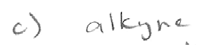 c) alkyne